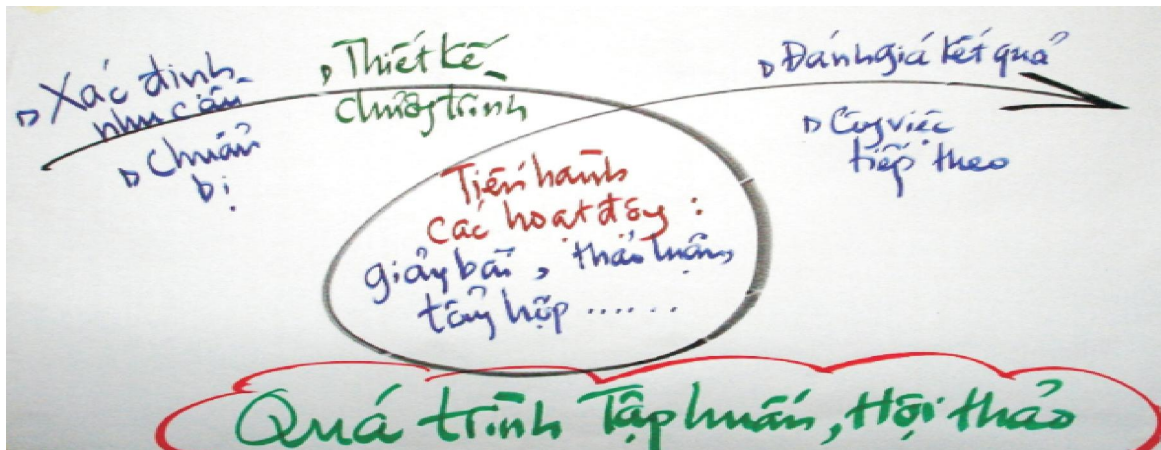 Xác định
nhu cầu
Chuẩn
bị
Thiết kế
chương trình
Tiến hành
các hoạt động :
giảng bài, thảo luận,
tổng hợp ......
Đánh giá kết quả
Công việc
tiếp theo
Quá trình Tập huấn, Hội thảo